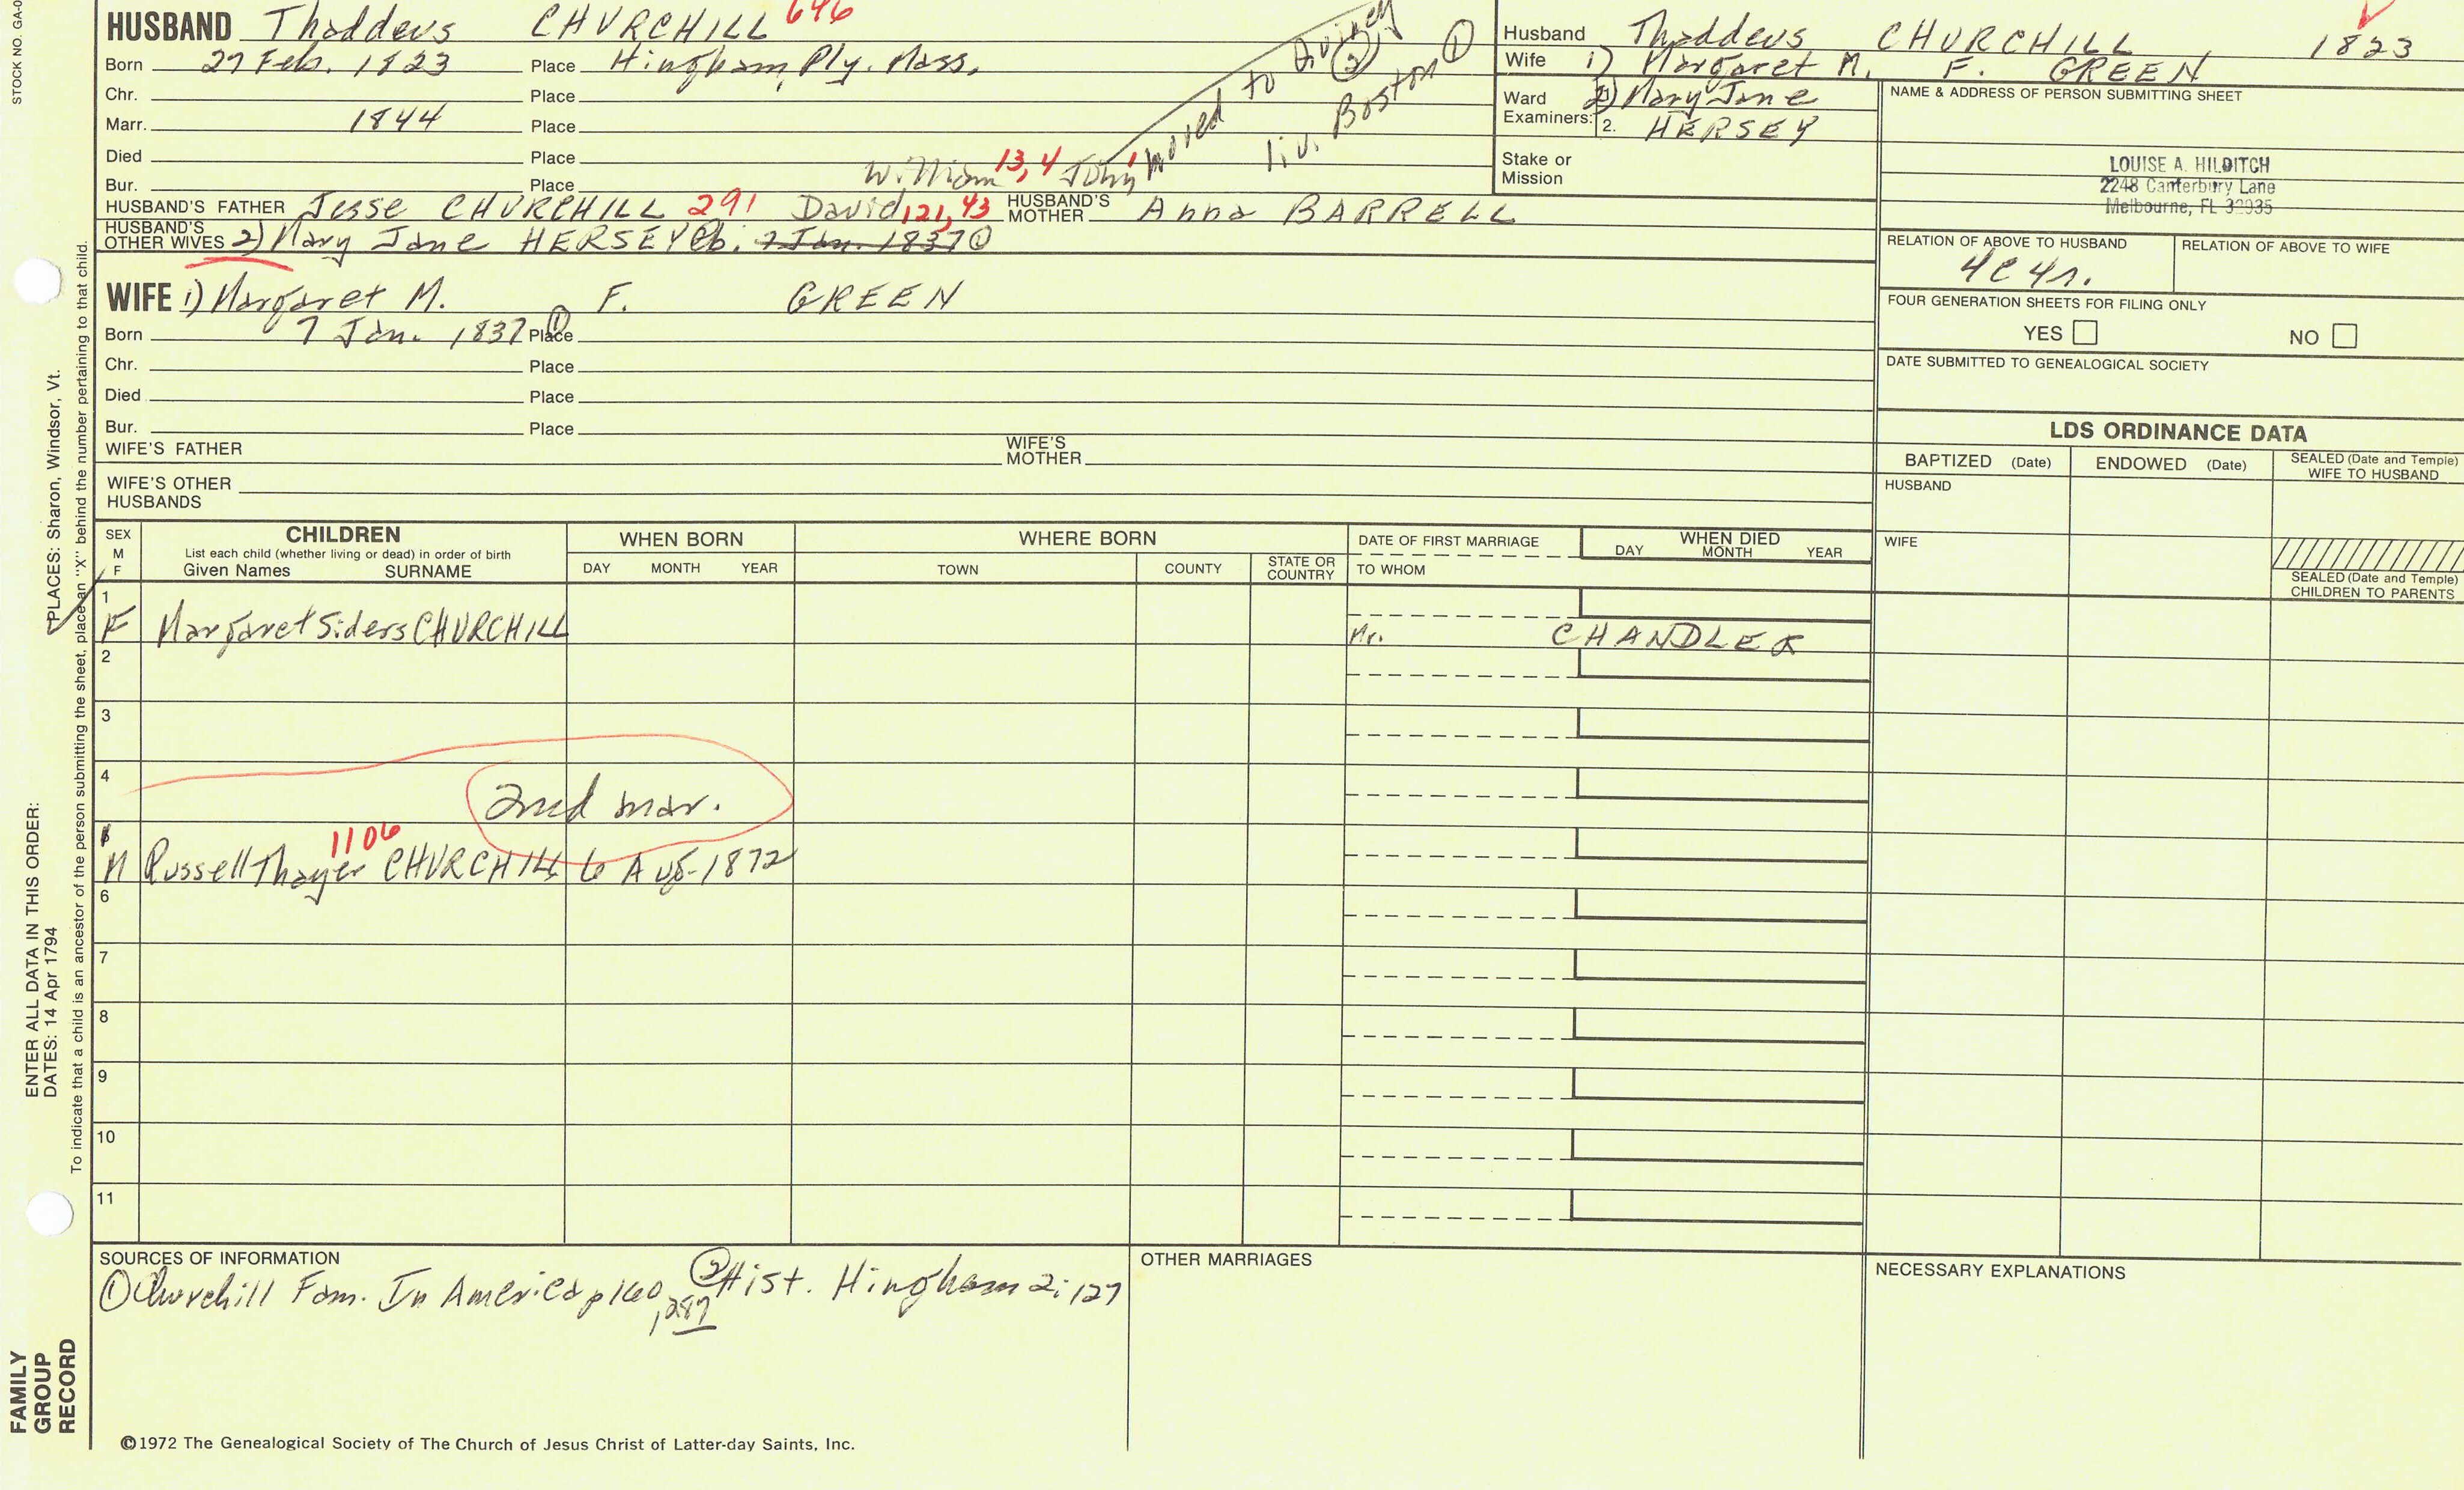 STOCK NO. GA-0
HUSBAND Thaddeus CHURCHILL 646
Born 27 Feb. 1823 Place Hingham, Ply. Mass.
Chr. Place
Marr. 1844 Place
Died Place
Bur. Place
moved to Quincy ②
liv. Boston ①
William 13,4 John 1
HUSBAND'S FATHER Jesse CHURCHILL 291 David 121, 43 HUSBAND'S MOTHER Anna BARRELL
HUSBAND'S OTHER WIVES 2) Mary Jane HERSEY b. 7 Jan. 1837 ①
WIFE 1) Margaret M. F. GREEN
Born 7 Jan. 1837 ① Place
Chr. Place
Died Place
Bur. Place
WIFE'S FATHER WIFE'S MOTHER
WIFE'S OTHER HUSBANDS
Husband Thaddeus CHURCHILL 1823
Wife 1) Margaret M. F. GREEN
Ward Examiners: 2) Mary Jane
2. HERSEY
Stake or Mission
NAME & ADDRESS OF PERSON SUBMITTING SHEET
LOUISE A. HILDITCH
2248 Canterbury Lane
Melbourne, FL 32935
RELATION OF ABOVE TO HUSBAND RELATION OF ABOVE TO WIFE
4c4r.
FOUR GENERATION SHEETS FOR FILING ONLY
YES NO
DATE SUBMITTED TO GENEALOGICAL SOCIETY
LDS ORDINANCE DATA
BAPTIZED (Date) ENDOWED (Date) SEALED (Date and Temple) WIFE TO HUSBAND
HUSBAND
WIFE
SEALED (Date and Temple) CHILDREN TO PARENTS
SEX M F CHILDREN WHEN BORN WHERE BORN DATE OF FIRST MARRIAGE WHEN DIED
List each child (whether living or dead) in order of birth
Given Names SURNAME DAY MONTH YEAR TOWN COUNTY STATE OR COUNTRY TO WHOM DAY MONTH YEAR
1
F Margaret Siders CHURCHILL Mr. CHANDLER
2
3
4
2nd mar.
1106
M Russell Thayer CHURCHILL 6 Aug. 1872
6
7
8
9
10
11
SOURCES OF INFORMATION
① Churchill Fam. In America p160, 287 ② Hist. Hingham 2:127
OTHER MARRIAGES
NECESSARY EXPLANATIONS
©1972 The Genealogical Society of The Church of Jesus Christ of Latter-day Saints, Inc.
FAMILY GROUP RECORD
ENTER ALL DATA IN THIS ORDER:
DATES: 14 Apr 1794
PLACES: Sharon, Windsor, Vt.
To indicate that a child is an ancestor of the person submitting the sheet, place an "X" behind the number pertaining to that child.